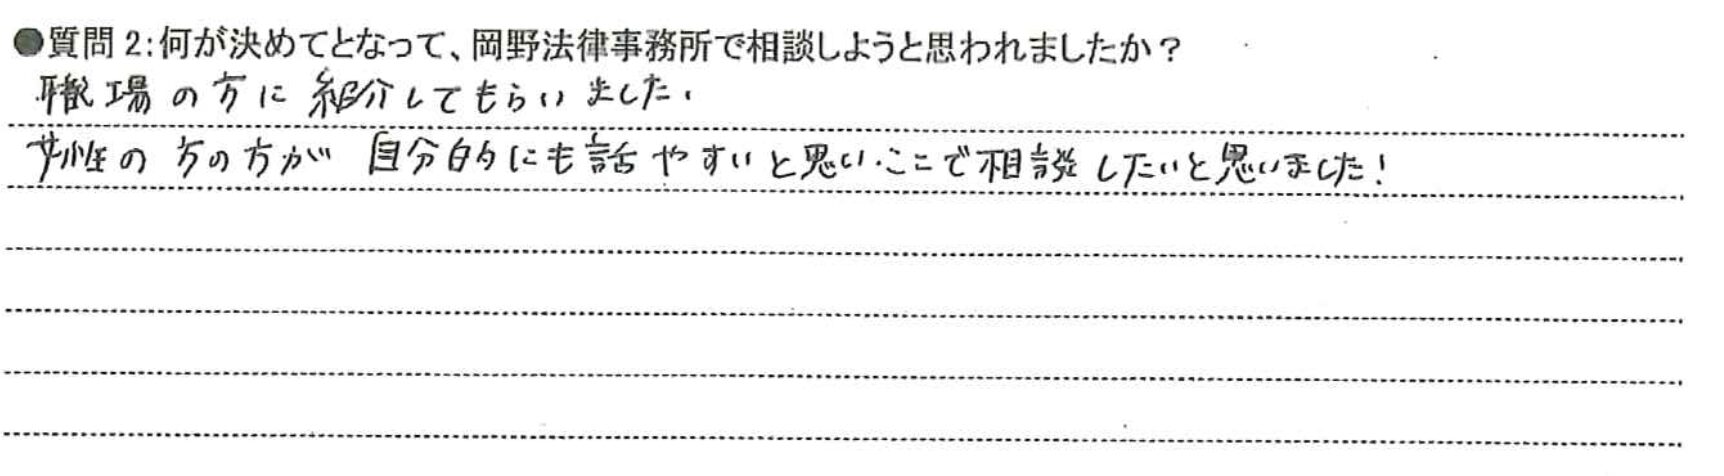 ●質問2:何が決めてとなって、岡野法律事務所で相談しようと思われましたか？
職場の方に紹介してもらいました。
女性の方の方が自分的にも話やすいと思い、ここで相談したいと思いました!